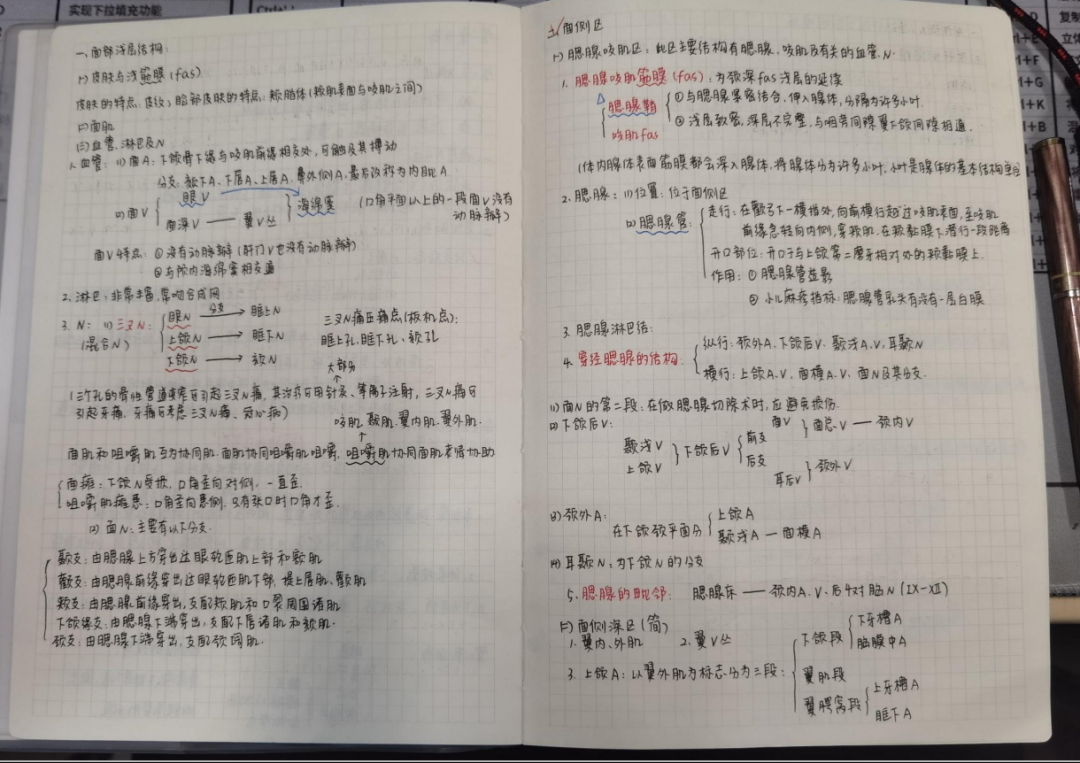 实现下拉填充功能
Ctrl+'
一、面部浅层结构:
(一) 皮肤与浅筋膜 (fas)
皮肤的特点: 皮纹; 脸部皮肤的特点: 颊脂体 (颊肌表面与咬肌之间)
(二) 面肌
(三) 血管、淋巴及N
1. 血管: (1) 面A: 下颌骨下缘与咬肌前缘相交处, 可触及其搏动
分支: 颏下A、下唇A、上唇A、鼻外侧A, 最后改称为内眦A
(2) 面V
眼V
面深V —— 翼V丛
海绵窦
(口角平面以上的一段面V没有动脉瓣)
面V特点: ① 没有动脉瓣 (肝门V也没有动脉瓣)
② 与颅内海绵窦相交通
2. 淋巴: 非常丰富, 常吻合成网
3. N: (1) 三叉N:
(混合N)
眼N 分支→ 眶上N
上颌N → 眶下N
下颌N → 颏N
三叉N痛压痛点 (扳机点):
眶上孔、眶下孔、颏孔
大部分
(三个孔的骨性管道狭窄可引起三叉N痛, 其治疗可用针灸、等离子注射, 三叉N痛可
引起牙痛, 牙痛可考虑三叉N痛、冠心病)
咬肌、颞肌、翼内肌、翼外肌.
面肌和咀嚼肌互为协同肌. 面肌协同咀嚼肌咀嚼, 咀嚼肌协同面肌表情协助
面瘫: 下颌N受损, 口角歪向对侧, 一直歪.
咀嚼肌瘫患: 口角歪向患侧, 只有张口时口角才歪.
(2) 面N: 主要有以下分支.
颞支: 由腮腺上方穿出达眼轮匝肌上部和额肌
颧支: 由腮腺前缘穿出达眼轮匝肌下部, 提上唇肌、颧肌
颊支: 由腮腺前缘穿出, 支配颊肌和口裂周围诸肌
下颌缘支: 由腮腺下端穿出, 支配下唇诸肌和颏肌.
颈支: 由腮腺下端穿出, 支配颈阔肌.
二、面侧区
(一) 腮腺咬肌区: 此区主要结构有腮腺、咬肌及有关的血管、N.
1. 腮腺咬肌筋膜 (fas): 为颈深fas浅层的延续
腮腺鞘
咬肌fas
① 与腮腺紧密结合, 伸入腺体, 分隔为许多小叶.
② 浅层致密, 深层不完整, 与咽旁间隙翼下颌间隙相通.
(体内腺体表面筋膜都会深入腺体, 将腺体分为许多小叶, 小叶是腺体的基本结构单位
2. 腮腺: (1) 位置: 位于面侧区
(2) 腮腺管:
走行: 在颧弓下一横指处, 向前横行越过咬肌表面, 至咬肌
前缘急转向内侧, 穿颊肌, 在颊黏膜下潜行一段距离
开口部位: 开口于与上颌第二磨牙相对处的颊黏膜上.
作用: ① 腮腺管造影
② 小儿麻疹指标: 腮腺管乳头有没有一层白膜
3. 腮腺淋巴结:
4. 穿经腮腺的结构:
纵行: 颈外A、下颌后V、颞浅A、V、耳颞N
横行: 上颌A、V、面横A、V、面N及其分支.
(1) 面N的第二段: 在做腮腺切除术时, 应避免损伤.
(2) 下颌后V:
颞浅V
上颌V
下颌后V
前支
后支
面V
面总V —— 颈内V
耳后V
颈外V
(3) 颈外A:
在下颌颈平面分
上颌A
颞浅A — 面横A
(4) 耳颞N: 为下颌N的分支
5. 腮腺的毗邻: 腮腺床 —— 颈内A、V、后4对脑N (IX-XII)
(二) 面侧深区 (简)
1. 翼内、外肌 2. 翼V丛
3. 上颌A: 以翼外肌为标志分为三段:
下颌段
下牙槽A
脑膜中A
翼肌段
翼腭窝段
上牙槽A
眶下A